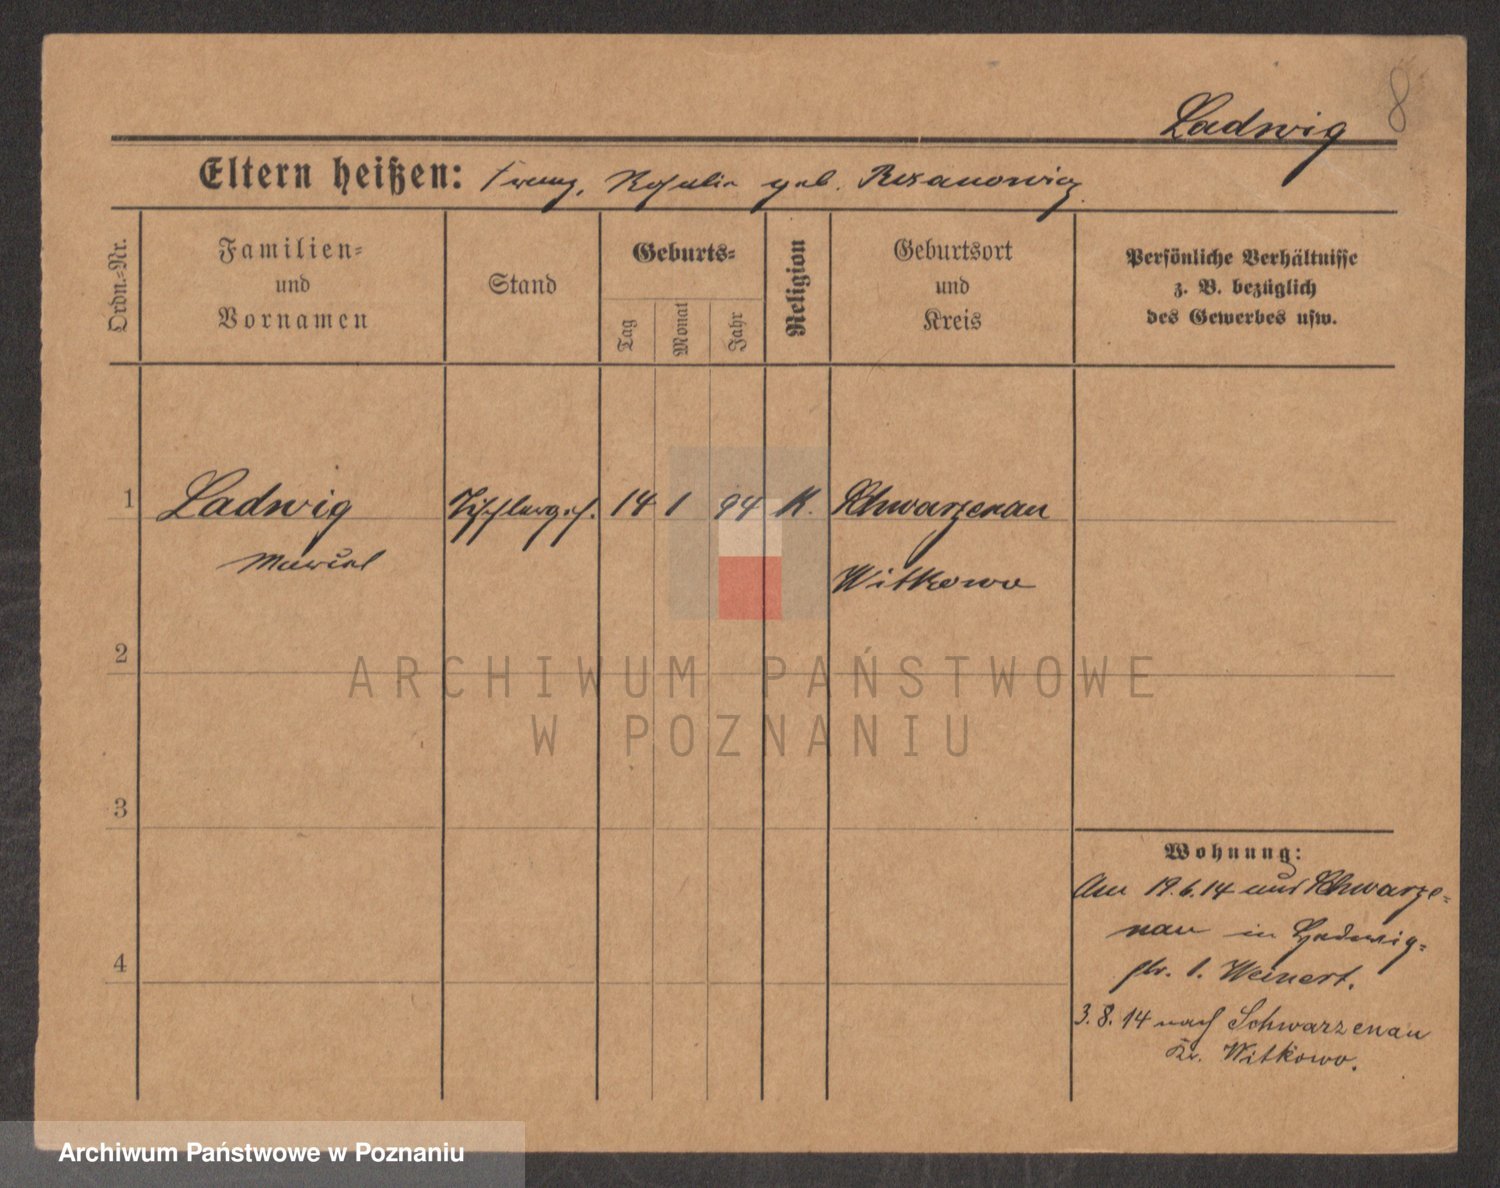 8
Ladwig
Eltern heißen: Franz, Rosalie geb. Rezanowicz
Ordn.-Nr.
Familien-
und
Vornamen
Stand
Geburts-
Tag
Monat
Jahr
Religion
Geburtsort
und
Kreis
Persönliche Verhältnisse
z. B. bezüglich
des Gewerbes usw.
1 Ladwig Tischlerges. 14 1 94 K. Schwarzenau
Witkowo
2
3
4
Wohnung:
Am 19.6.14 aus Schwarze-
nau in
1. Weinert.
3.8.14 nach Schwarzenau
Kr. Witkowo.
ARCHIWUM PAŃSTWOWE
W POZNANIU
Archiwum Państwowe w Poznaniu